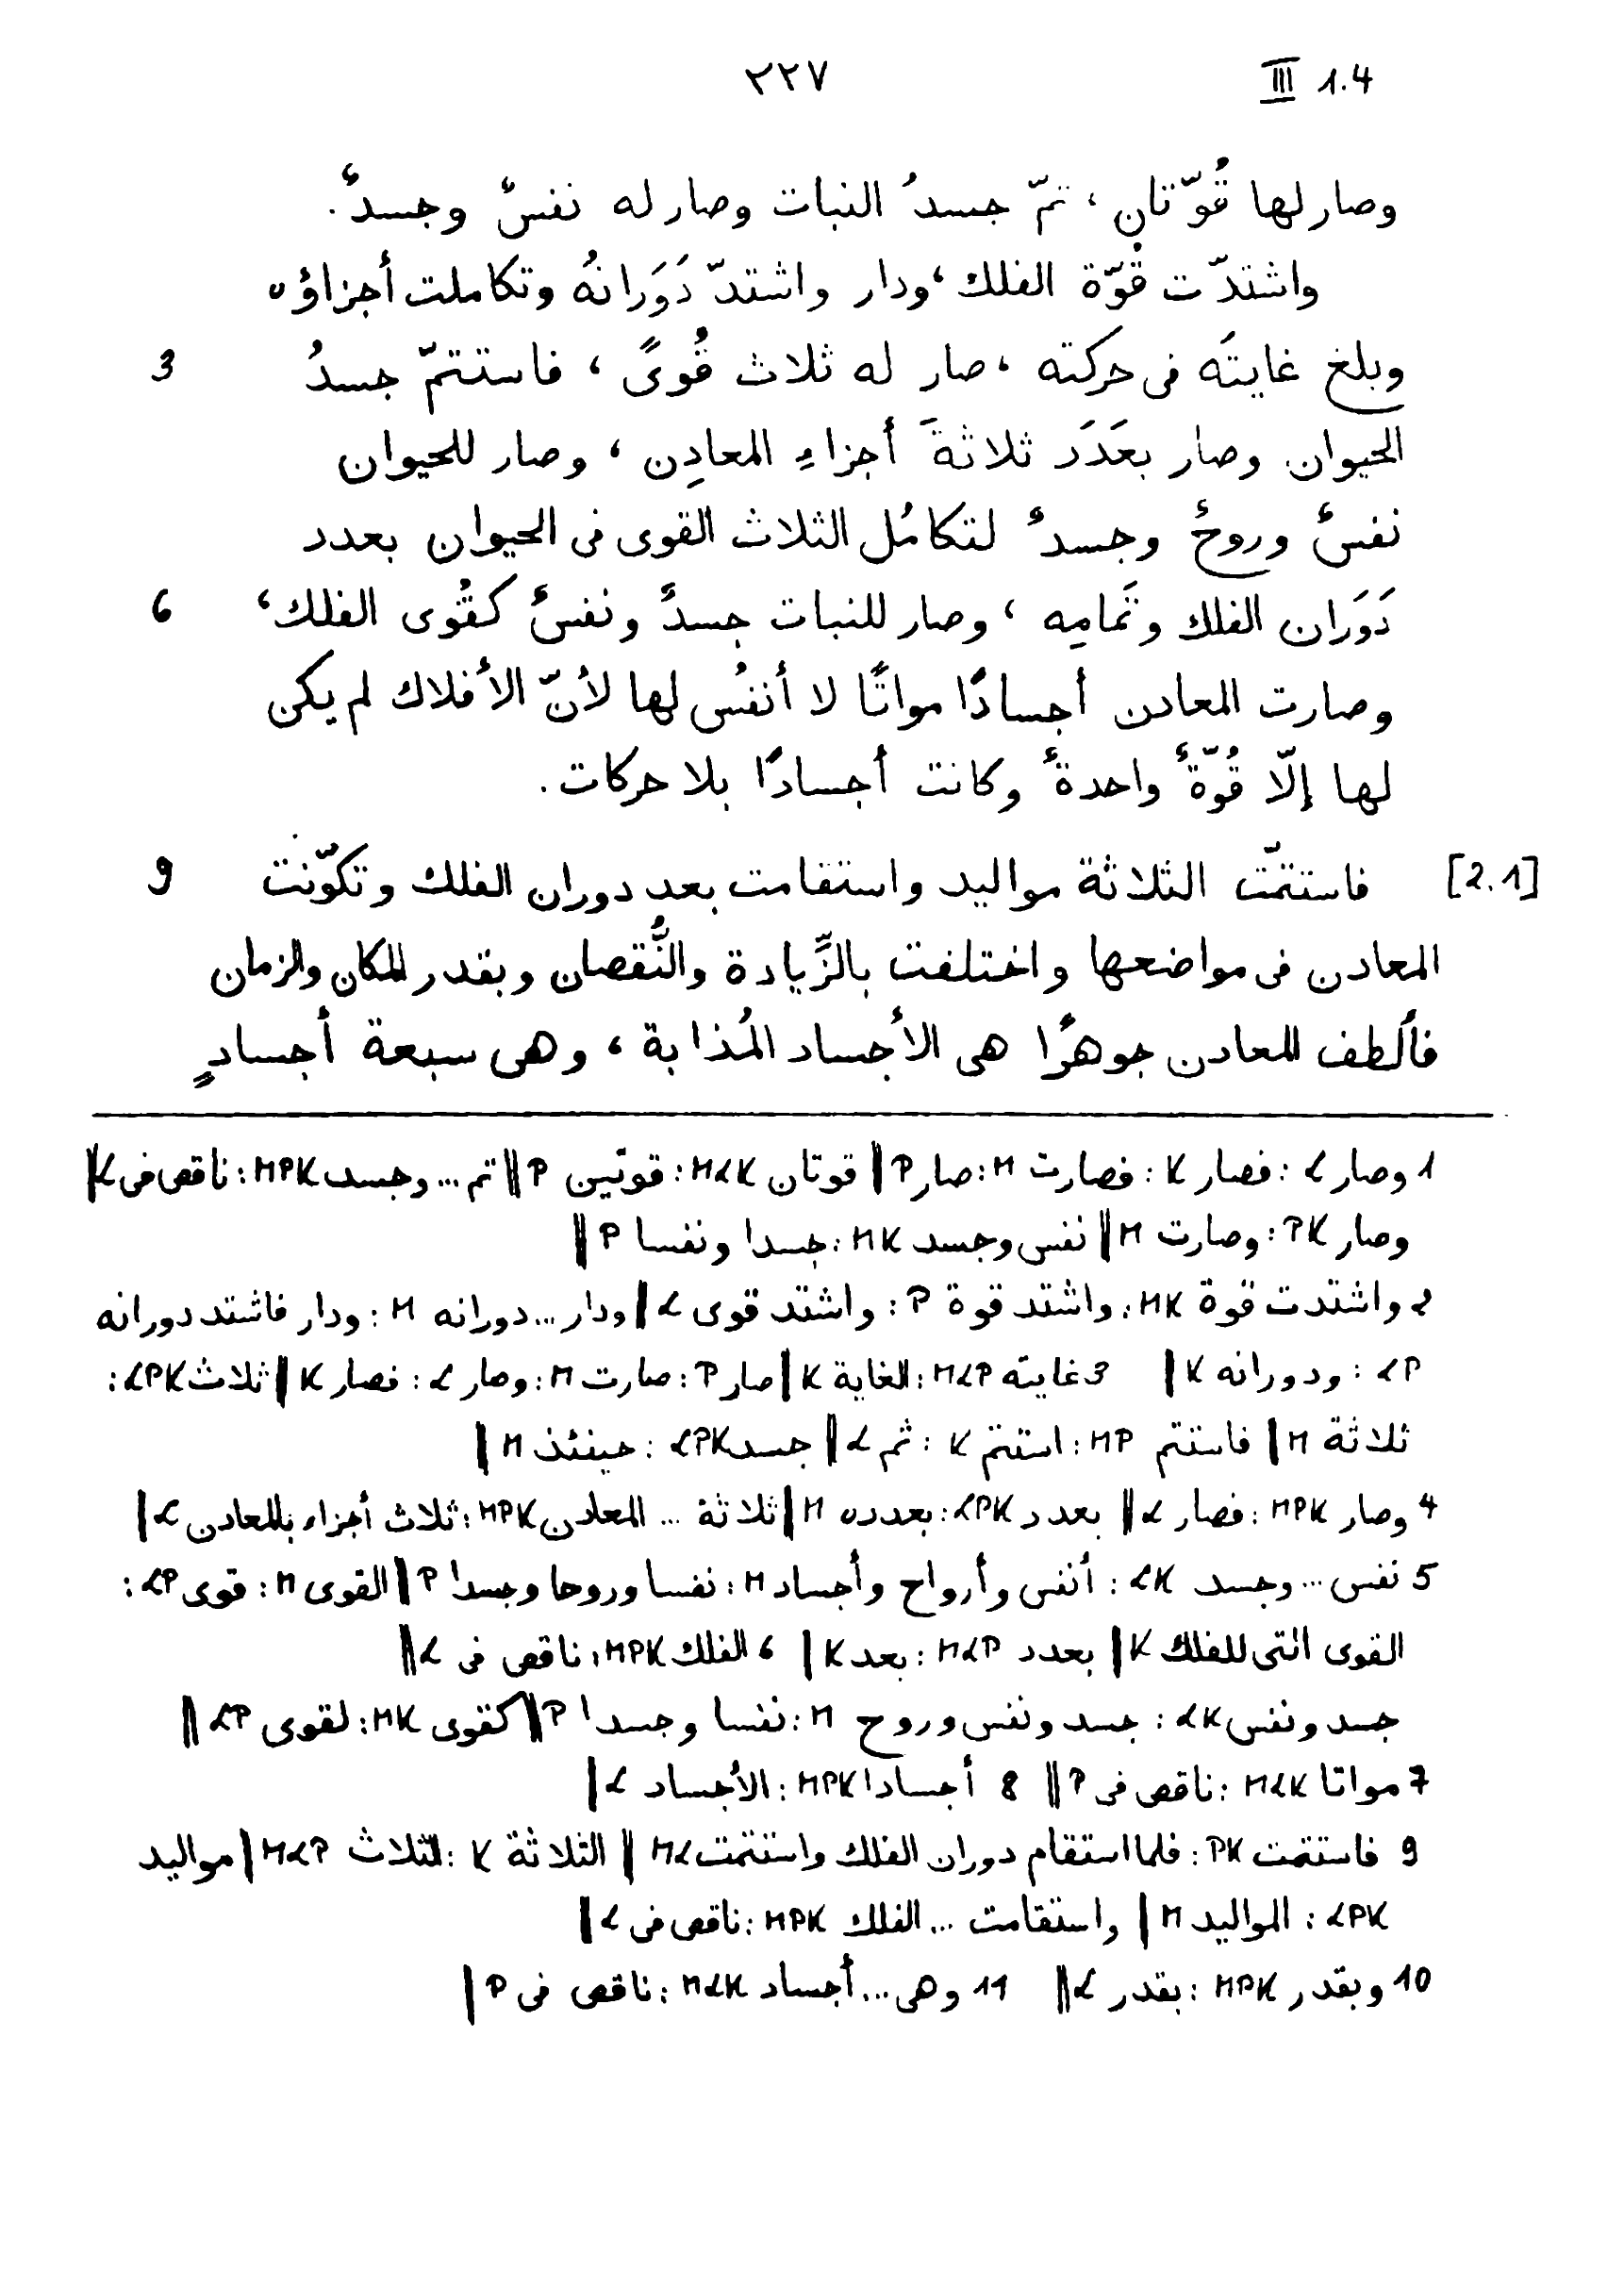 ٢٢٧ III 1.4
وصار لها قُوّتان، تمّ جسدُ النبات وصار له نفسٌ وجسدٌ.
واشتدّت قُوّة الفلك، ودار واشتدّ دَوَرانُه وتكاملت أجزاؤه
3 وبلغ غايتَه فى حركته، صار له ثلاث قُوىً، فاستتمّ جسدُ
الحيوان وصار بعَدَد ثلاثةَ أجزاءِ المعادِن، وصار للحيوان
نفسٌ وروحٌ وجسدٌ لتكامُل الثلاث القوى فى الحيوان بعدد
6 دَوَران الفلك وتَمامِه، وصار للنبات جسدٌ ونفسٌ كقُوى الفلك،
وصارت المعادن أجسادًا مواتًا لا أنفُس لها لأنّ الأفلاك لم يكن
لها إلّا قُوّةٌ واحدةٌ وكانت أجسادًا بلا حركات.
9 [2.1] فاستتمّت الثلاثة مواليد واستقامت بعد دوران الفلك وتكوّنت
المعادن فى مواضعها واختلفت بالزِّيادة والنُّقصان وبقدر المكان والزمان
فألطف المعادن جوهرًا هى الأجساد المُذابة، وهى سبعة أجسادٍ
1 وصار L : فصار K : فصارت M : صار P || قوتان MLK : قوتين P || تم ... وجسد MPK : ناقص فى L ||
وصار PK : وصارت M || نفس وجسد MK : جسدا ونفسا P ||
2 واشتدت قوة MK : واشتد قوة P : واشتد قوى L || ودار ... دورانه M : ودار فاشتد دورانه
LP : ودورانه K || 3 غايته MLP : الغاية K || صار P : صارت M : وصار L : فصار K || ثلاث LPK :
ثلاثة M || فاستتم MP : استتم K : ثم L || جسد LPK : حينئذ M ||
4 وصار MPK : فصار L || بعدد LPK : بعدده M || ثلاثة ... المعادن MPK : ثلاث أجزاء بالمعادن L ||
5 نفس ... وجسد LK : أنفس وأرواح وأجساد M : نفسا وروحا وجسدا P || القوى M : قوى LP :
القوى التى للفلك K || بعدد MLP : بعد K || 6 الفلك MPK : ناقص فى L ||
جسد ونفس LK : جسد ونفس وروح M : نفسا وجسدا P || كقوى MK : لقوى LP ||
7 مواتا MLK : ناقص فى P || 8 أجسادا MPK : الأجساد L ||
9 فاستتمت PK : فلما استقام دوران الفلك واستتمت ML || الثلاثة K : الثلاث MLP || مواليد
LPK : المواليد M || واستقامت ... الفلك MPK : ناقص فى L ||
10 وبقدر MPK : بقدر L || 11 وهى ... أجساد MLK : ناقص فى P ||